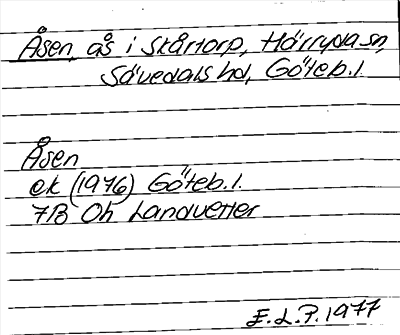 Åsen, ås i Skårtorp, Härryda sn,
Sävedals hd, Göteb. l.
Åsen
ek (1976) Göteb. l.
7B Öh Landvetter
E. L. P. 1977